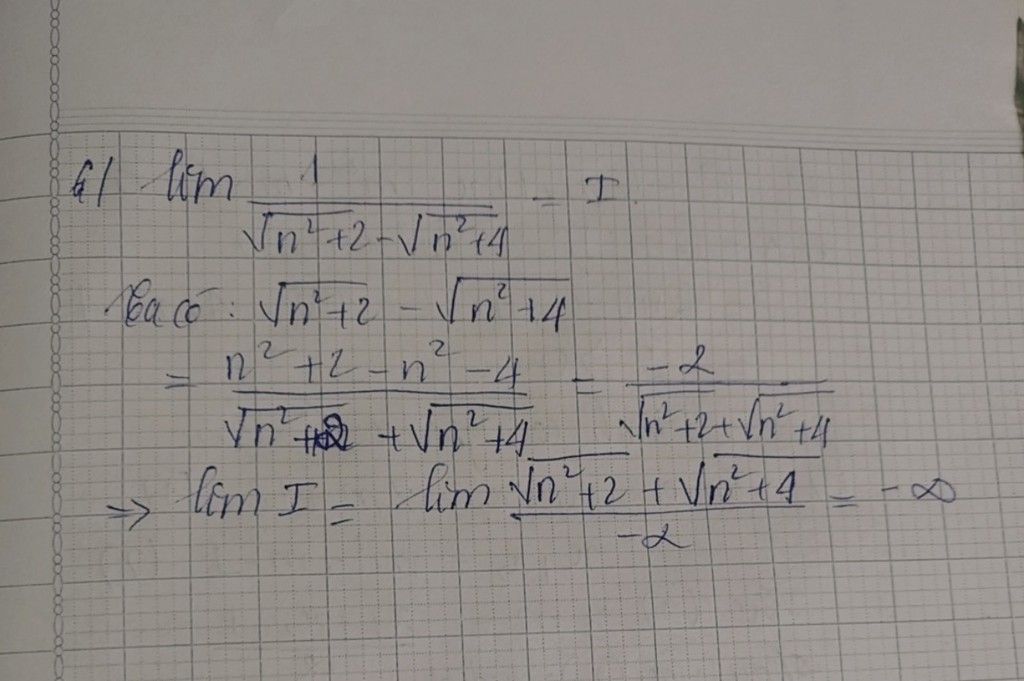 4/ lim 1/(√(n²+2) - √(n²+4)) = I
Ta có: √(n²+2) - √(n²+4)
= (n²+2-n²-4)/(√(n²+2) + √(n²+4)) = -2/(√(n²+2)+√(n²+4))
=> lim I = lim (√(n²+2) + √(n²+4))/-2 = -∞